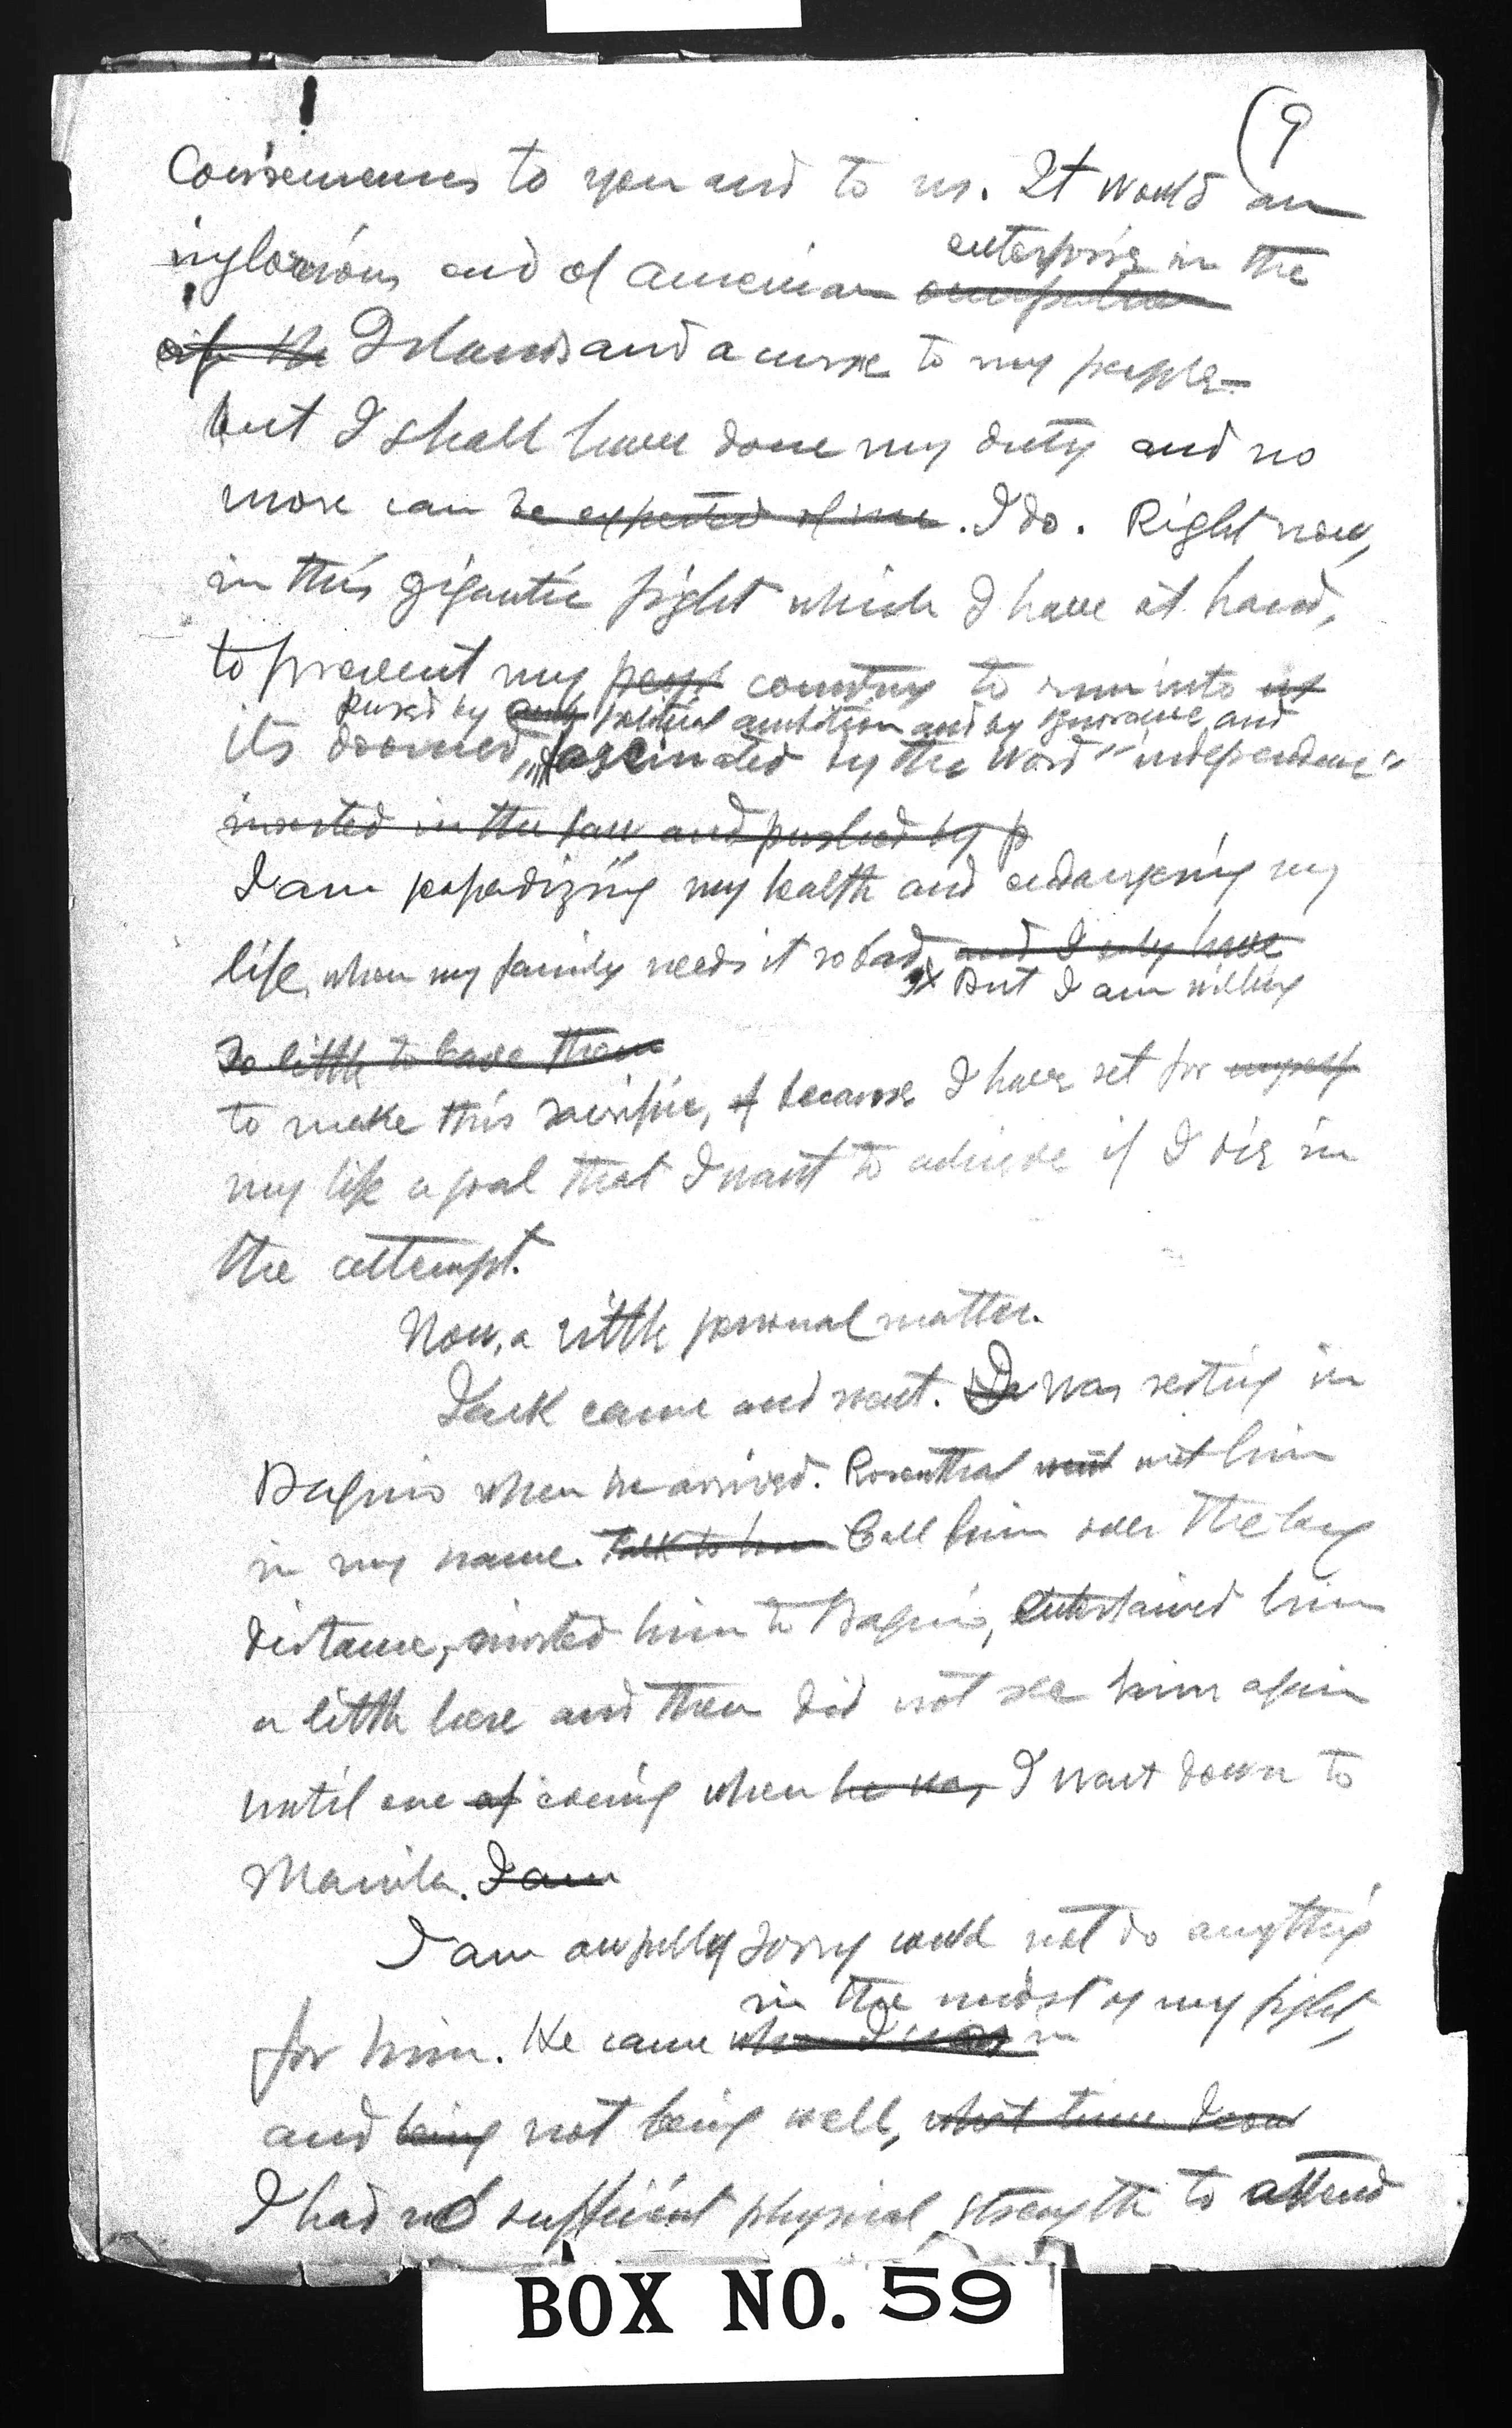 (9
Consequences to you and to us. It would an
inglorious end of American enterprise in the
Islands and a curse to my people—
but I shall have done my duty and no
more can be expected of me. I do. Right now,
in this gigantic fight which I have at hand,
to prevent my peopl country to run into its
pushed by political ambition and by ignorance, and
its doomed, fascinated by the word "independence"
inserted in the law and pushed by p
I am jeopardizing my health and endangering my
life, when my family needs it so bad, and I only have
But I am willing
so little to leave them
to make this sacrifice, because I have set for myself
my life a goal that I want to achieve if I die in
the attempt.
Now, a little personal matter.
Jack came and went. I was resting in
Baguio when he arrived. Rosenthal went met him
in my name. Talk to him Call him over the long
distance, invited him to Baguio, entertained him
a little here and then did not see him again
until one evening when he was, I went down to
Manila. I am
I am awfully sorry could not do anything
in the midst of my fight,
for him. He came when I was in
and being not being well, what time I could
I had not sufficient physical strength to attend
BOX NO. 59